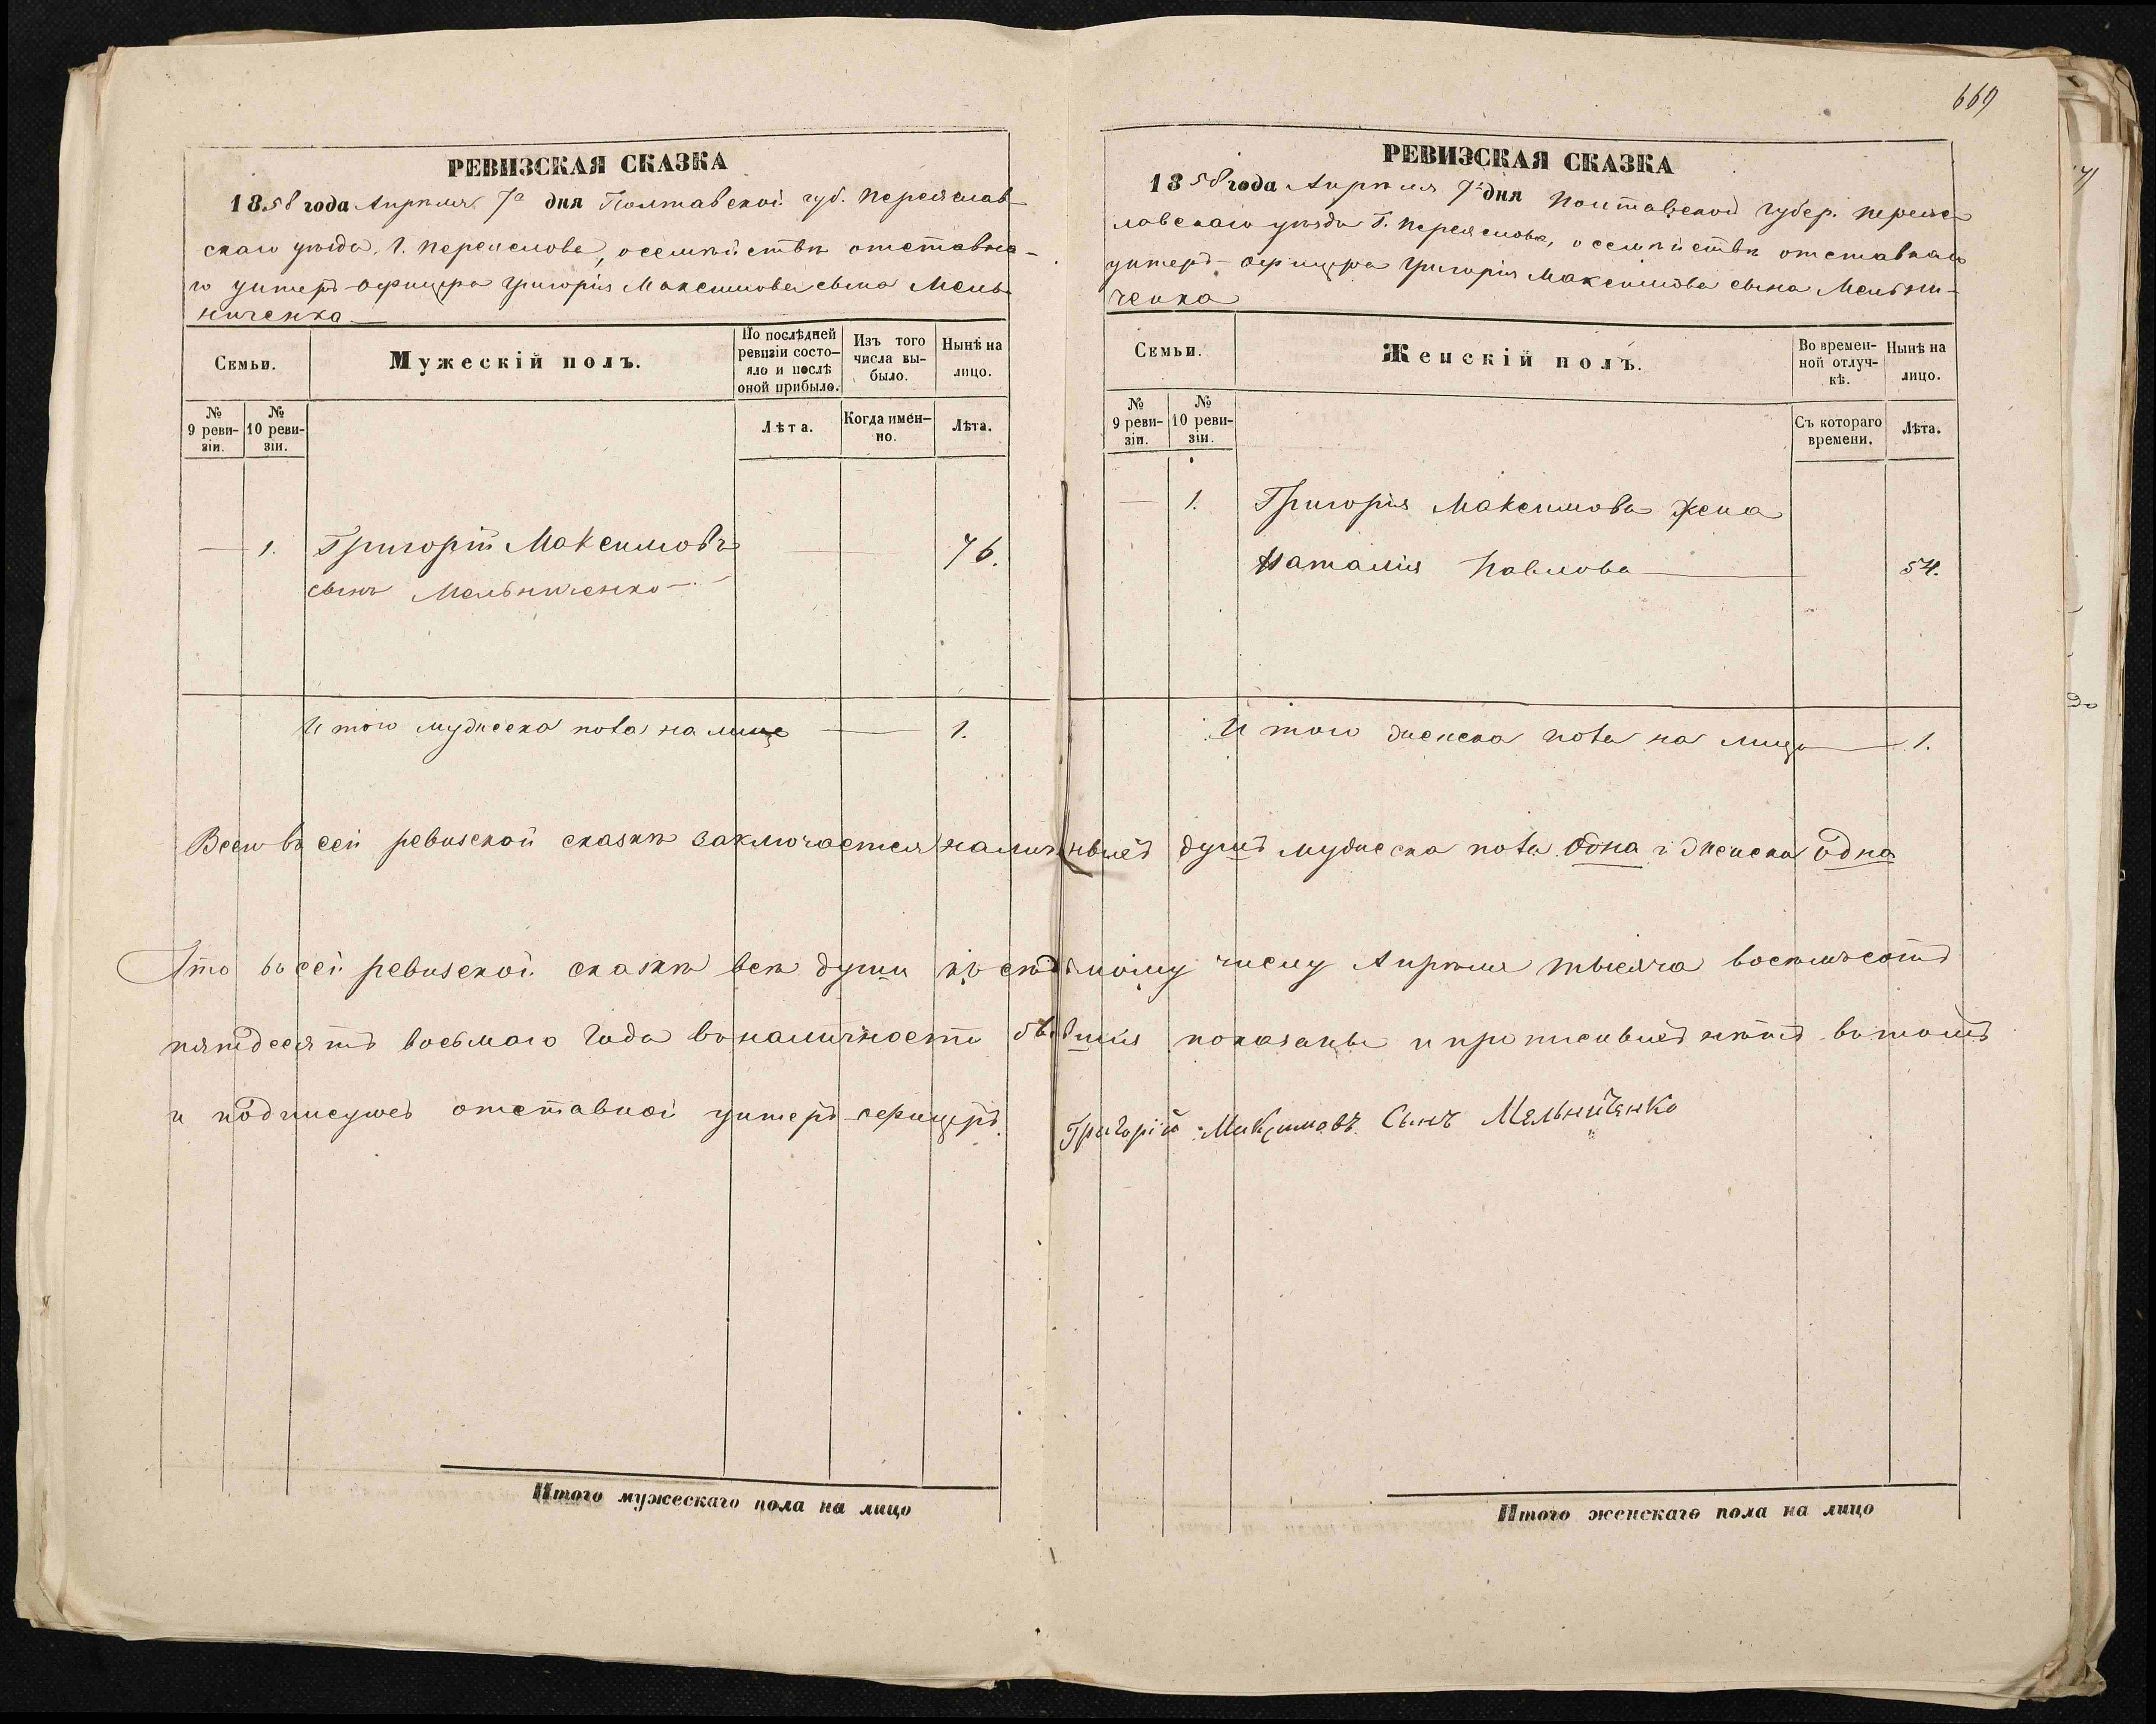 669
РЕВИЗСКАЯ СКАЗКА
1858 года Апрѣля 7го дня Полтавской губ. Переяслав-
скаго уѣзда, Г. Переяслова, о семѣйствѣ отставна-
го унтеръ-офицера Григорія Максимова сына Мель-
ниченка
Семьи.
Мужескій полъ.
По послѣдней ревизіи состо-яло и послѣ оной прибыло.
Изъ того числа вы-было.
Нынѣ на лицо.
№ 9 реви-зіи.
№ 10 реви-зіи.
Лѣта.
Когда имен-но.
Лѣта.
— 1. Григорій Максимовъ — 76.
сынъ Мельниченко —
Итого мужеска пола на лице — 1.
РЕВИЗСКАЯ СКАЗКА
1858 года Апрѣля 7го дня Полтавской губер. Перея-
лавскаго уѣзда Г. Переяслова, о семѣйствѣ отставнаго
унтеръ-офицера Григорія Максимова сына Мельни-
ченка
Семьи.
Женскій полъ.
Во времен-ной отлуч-кѣ.
Нынѣ на лицо.
№ 9 реви-зіи.
№ 10 реви-зіи.
Съ котораго времени.
Лѣта.
— 1. Григорія Максимова жена
Наталія Павлова — 54.
Итого женска пола на лицо — 1.
Всего въ сей ревизской сказкѣ заключается наличныхъ душъ мужеска пола одна и женска одна
Что въ сей ревизской сказкѣ всѣ души къ седьмому числу Апрѣля тысяча восемьсотъ
пятдесятъ восьмаго года въ наличности бывшія показаны и прописныхъ нѣтъ въ томъ
и подписуюсь отставной унтеръ-офицеръ Григорій Максимовъ Сынъ Мельниченко
Итого мужескаго пола на лицо
Итого женскаго пола на лицо